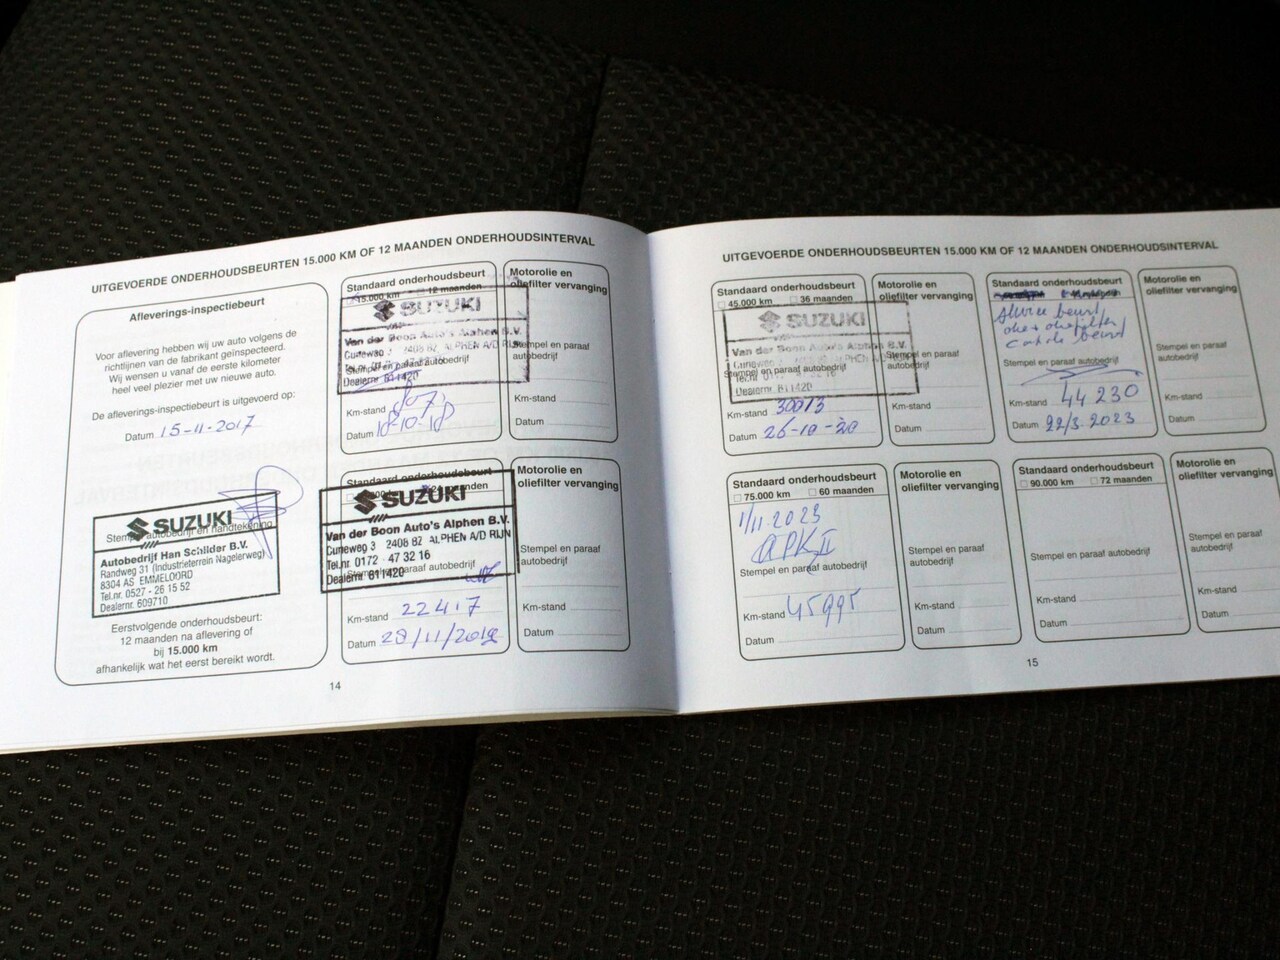 UITGEVOERDE ONDERHOUDSBEURTEN 15.000 KM OF 12 MAANDEN ONDERHOUDSINTERVAL
Afleverings-inspectiebeurt
Voor aflevering hebben wij uw auto volgens de
richtlijnen van de fabrikant geïnspecteerd.
Wij wensen u vanaf de eerste kilometer
heel veel plezier met uw nieuwe auto.
De afleverings-inspectiebeurt is uitgevoerd op:
Datum 15-11-2017
SUZUKI
Stempel autobedrijf en handtekening
Autobedrijf Han Schilder B.V.
Randweg 31 (Industrieterrein Nagelerweg)
8304 AS EMMELOORD
Tel.nr. 0527 - 26 15 52
Dealernr. 609710
Eerstvolgende onderhoudsbeurt:
12 maanden na aflevering of
bij 15.000 km
afhankelijk wat het eerst bereikt wordt.
Standaard onderhoudsbeurt
15.000 km 12 maanden
SUZUKI
Van der Boon Auto's Alphen B.V.
Cuneweg 3 2408 BZ ALPHEN A/D RIJN
Stempel en paraaf autobedrijf
Dealernr. 811420
Km-stand
Datum 18-10-18
Motorolie en
oliefilter vervanging
Stempel en paraaf
autobedrijf
Km-stand
Datum
Standaard onderhoudsbeurt
maanden
SUZUKI
Van der Boon Auto's Alphen B.V.
Cuneweg 3 2408 BZ ALPHEN A/D RIJN
Tel.nr. 0172 - 47 32 16
Stempel en paraaf autobedrijf
Dealernr. 811420
Km-stand 22417
Datum 28/11/2019
Motorolie en
oliefilter vervanging
Stempel en paraaf
autobedrijf
Km-stand
Datum
14
UITGEVOERDE ONDERHOUDSBEURTEN 15.000 KM OF 12 MAANDEN ONDERHOUDSINTERVAL
Standaard onderhoudsbeurt
45.000 km 36 maanden
SUZUKI
Van der Boon Auto's Alphen B.V.
Cuneweg 3 2408 BZ ALPHEN A/D RIJN
Stempel en paraaf autobedrijf
Tel.nr 0172 47 32 16
Dealernr 811420
Km-stand 30013
Datum 26-10-20
Motorolie en
oliefilter vervanging
Stempel en paraaf
autobedrijf
Km-stand
Datum
Standaard onderhoudsbeurt
beurt
olie + oliefilter
beurt
Stempel en paraaf autobedrijf
Km-stand 44 230
Datum 22/3 2023
Motorolie en
oliefilter vervanging
Stempel en paraaf
autobedrijf
Km-stand
Datum
Standaard onderhoudsbeurt
75.000 km 60 maanden
1/11.2023
APK II
Stempel en paraaf autobedrijf
Km-stand 45995
Datum
Motorolie en
oliefilter vervanging
Stempel en paraaf
autobedrijf
Km-stand
Datum
Standaard onderhoudsbeurt
90.000 km 72 maanden
Stempel en paraaf autobedrijf
Km-stand
Datum
Motorolie en
oliefilter vervanging
Stempel en paraaf
autobedrijf
Km-stand
Datum
15